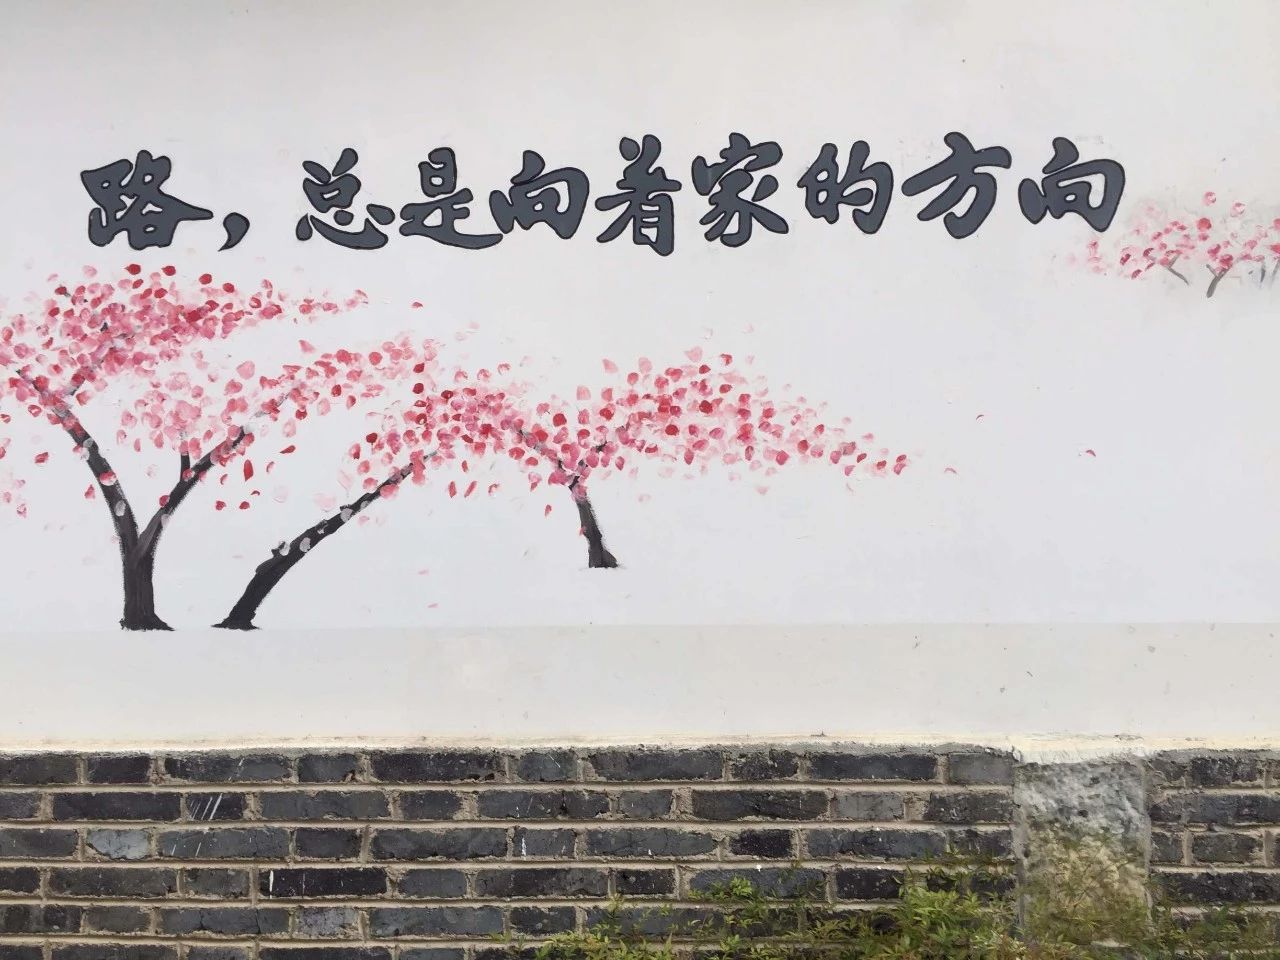 路，总是向着家的方向